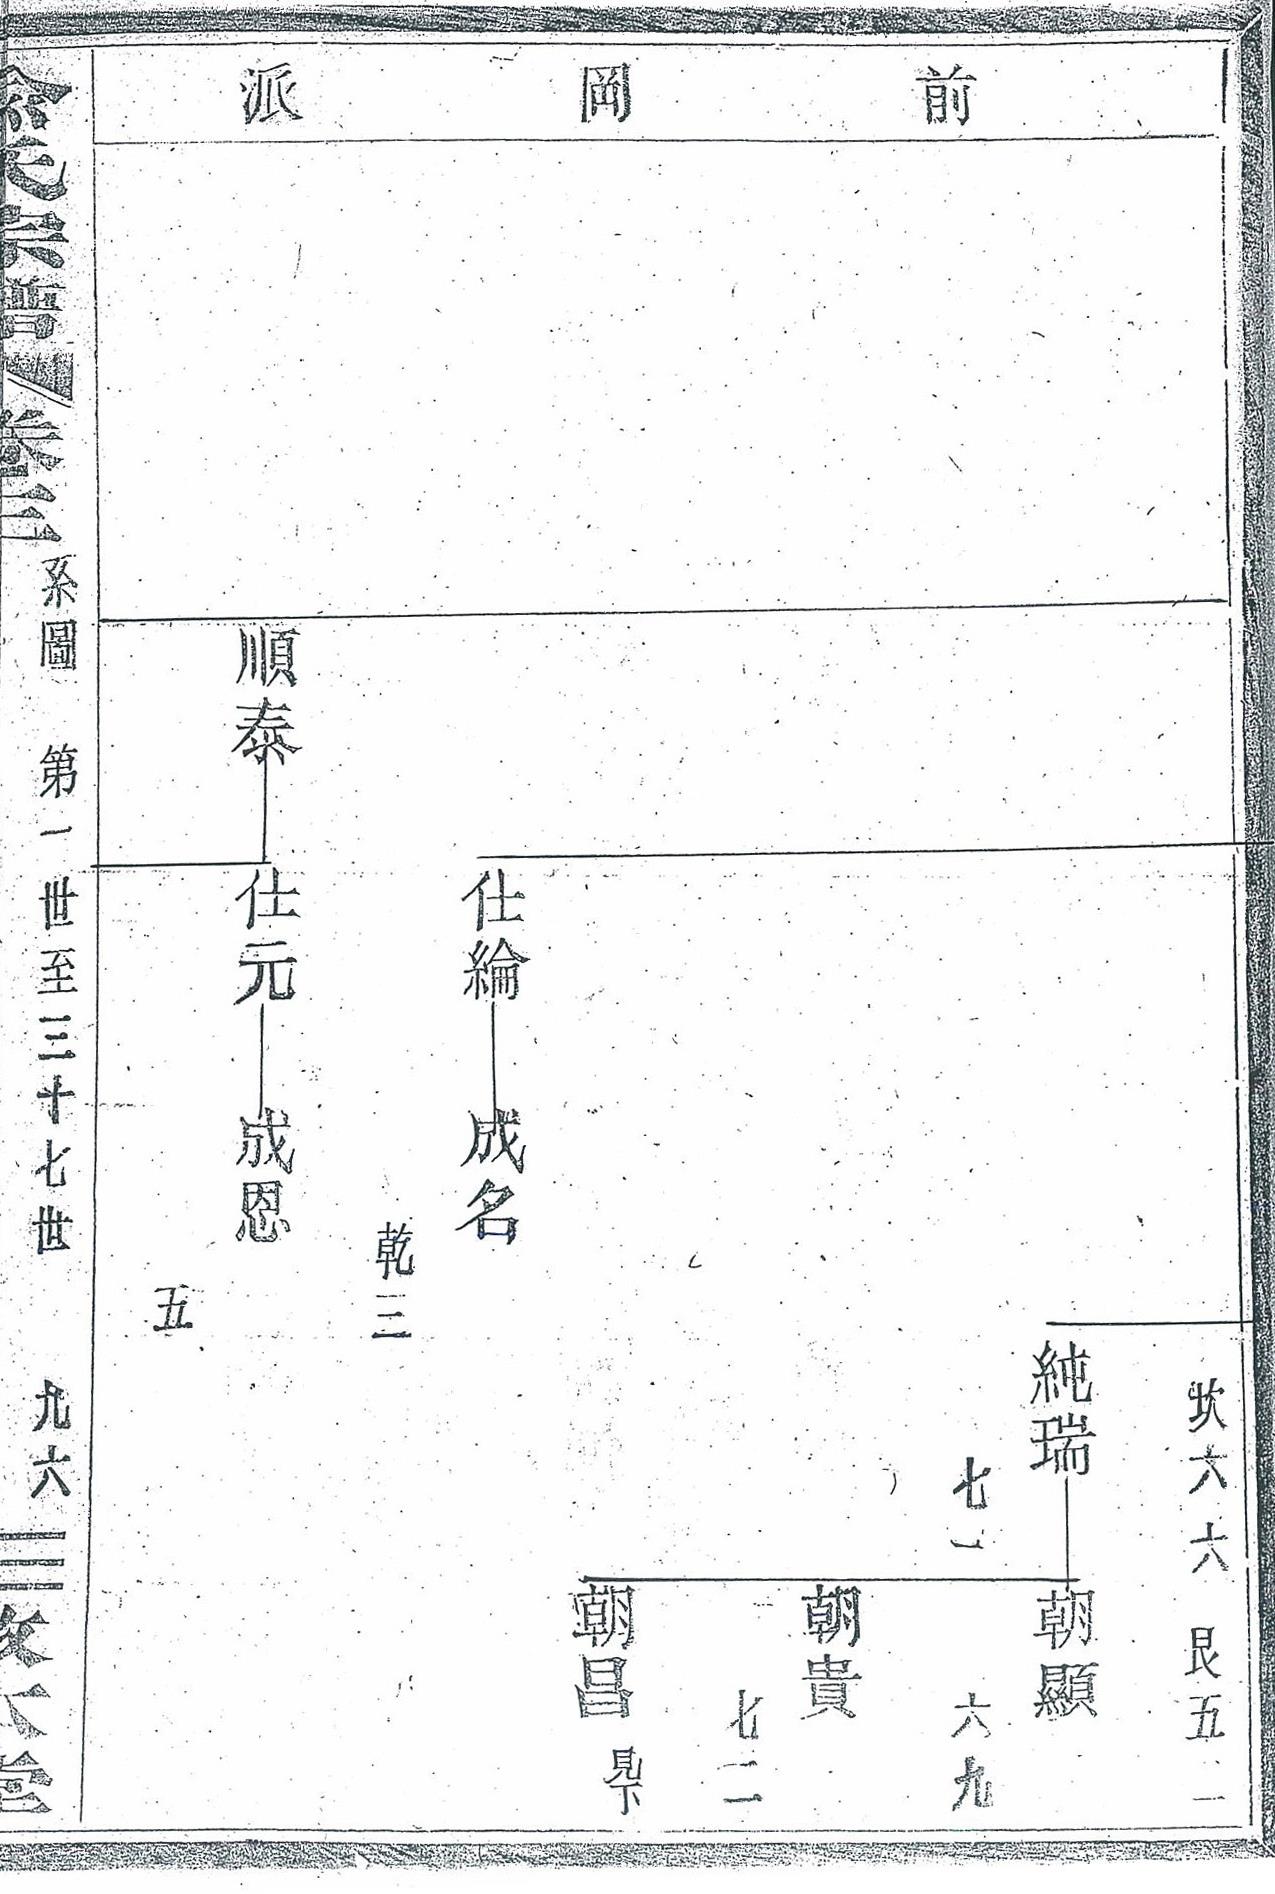 前岡派
坎六六 艮五一
純瑞
朝顯
七一
六九
朝貴
七二
朝昌
見下
仕綸
成名
乾三
順泰
仕元
成恩
五
氏宗譜 卷三 系圖 第一世至三十七世 九六